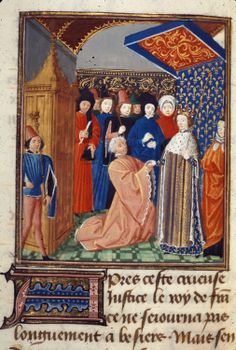 Apres ceste cruense
Justice le roy de fra
ce ne seiourna pas
longuement a besiers. Mais sen